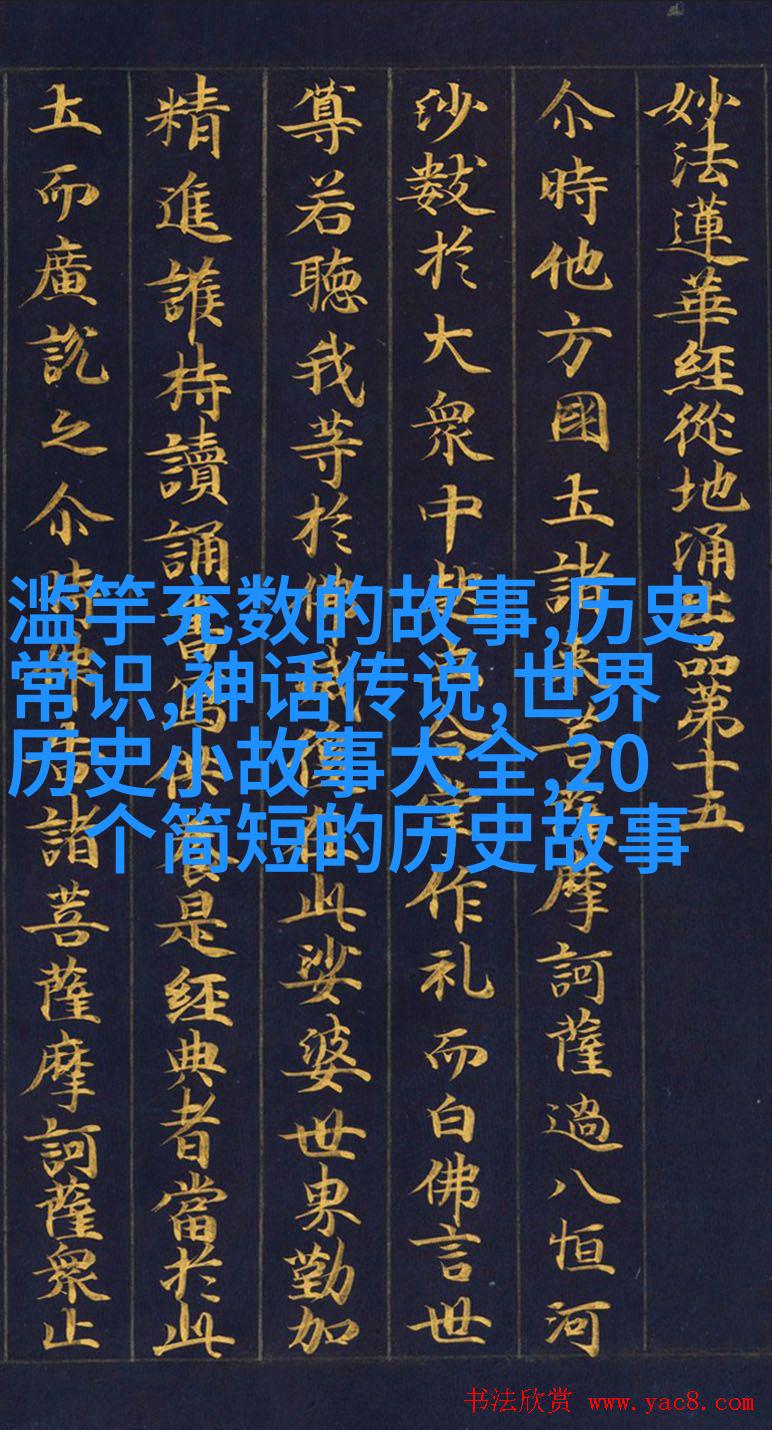 妙法蓮華經從地涌出品第十五
尒時他方國土諸来菩薩摩訶薩過八恒河
沙數於大眾中起立合掌作礼而白佛言世
尊若聽我等於佛滅後在此娑婆世界勤加
精進護持讀誦書寫供養是經典者當於此
土而廣說之尒時佛告諸菩薩摩訶薩眾止
滥竽充数的故事,历史
常识,神话传说,世界
历史小故事大全,20
个简短的历史故事
书法欣赏 www.yac8.com